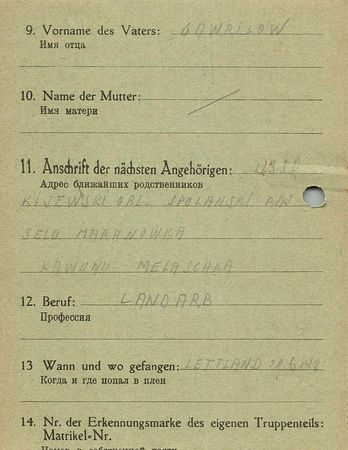 9. Vorname des Vaters: GAWRILOW
Имя отца
10. Name der Mutter:
Имя матери
11. Anschrift der nächsten Angehörigen:
Адрес ближайших родственников
KIJEWSKI OBL. SPOLANSKI RAJ
SELO MARANOWKA
KAWUNU MELASCHKA
12. Beruf: LANDARB
Профессия
13 Wann und wo gefangen: LETTLAND
Когда и где попал в плен
14. Nr. der Erkennungsmarke des eigenen Truppenteils:
Matrikel-Nr.